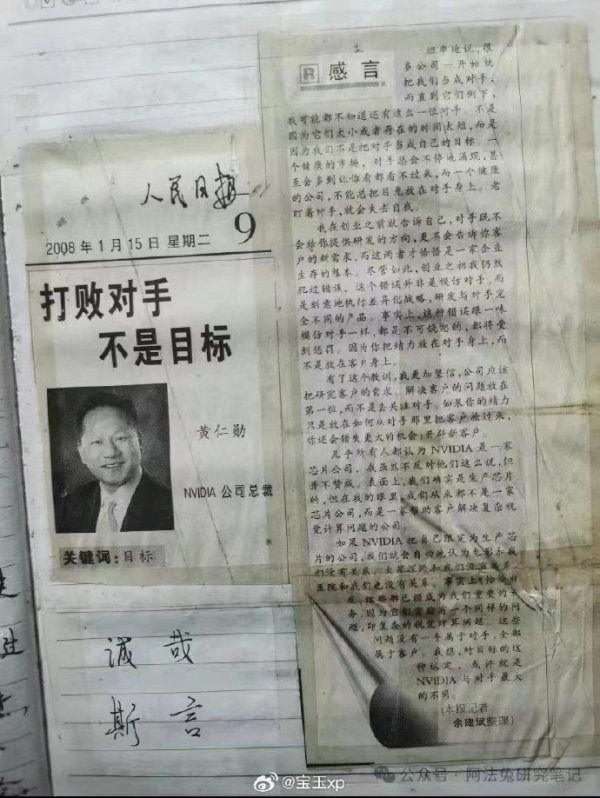 人民日报
9
2008年1月15日 星期二
打败对手
不是目标
黄仁勋
NVIDIA 公司总裁
关键词:目标
诚哉
斯言
R 感言
坦率地说,很
多公司一开始就
把我们当成对手,
而直到它们倒下,
我可能都不知道还有这么一位对手。不是
因为它们太小或者存在的时间太短,而是
因为我们不是把对手当成自己的目标。一
个健康的市场,对手总会不停地涌现,甚
至会多到让你看都看不过来,而一个健康
的公司,不能总把目光放在对手身上。老
盯着对手,就会失去自我。
我在创业之前就告诉自己,对手既不
会给你提供研发的方向,更不会告诉你客
户的新需求,而这两者才恰恰是一家企业
生存的根本。尽管如此,创业之初我仍然
犯过错误,这个错误并非是模仿对手,而
是刻意地执行差异化战略,研发与对手完
全不同的产品。事实上,这种错误跟一味
模仿对手一样,都是不可饶恕的,都得受
到惩罚。因为你把精力放在对手身上,而
不是放在客户身上。
有了这个教训,我更加坚信,公司应该
把研究客户的需求、解决客户的问题放在
第一位,而不是去关注对手。如果你的精力
只是放在如何从对手那里把客户抢过来,
你还会错失更大的机会:开辟新客户。
几乎所有人都认为 NVIDIA 是一家
芯片公司,我虽然不反对他们这么说,但
并不赞成。表面上,我们确实是生产芯片
的,但在我的眼里,我们从来都不是一家
芯片公司,而是一家帮助客户解决复杂视
觉计算问题的公司。
如果 NVIDIA 把自己限定为生产芯
片的公司,我们就会自动地认为电影和我
们没有关系、
医院和我们也没有关系。事实上,恰恰相
反,这些都已经成为我们重要的业
务,因为它们背后有一个同样的问
题,即复杂的视觉计算问题。这些
问题没有一个属于对手,全部
属于客户。我想,对目标的这
种认定,或许就是
NVIDIA 与对手最大
的不同。
(本报记者
余建斌整理)
@宝玉xp
公众号·阿法兔研究笔记